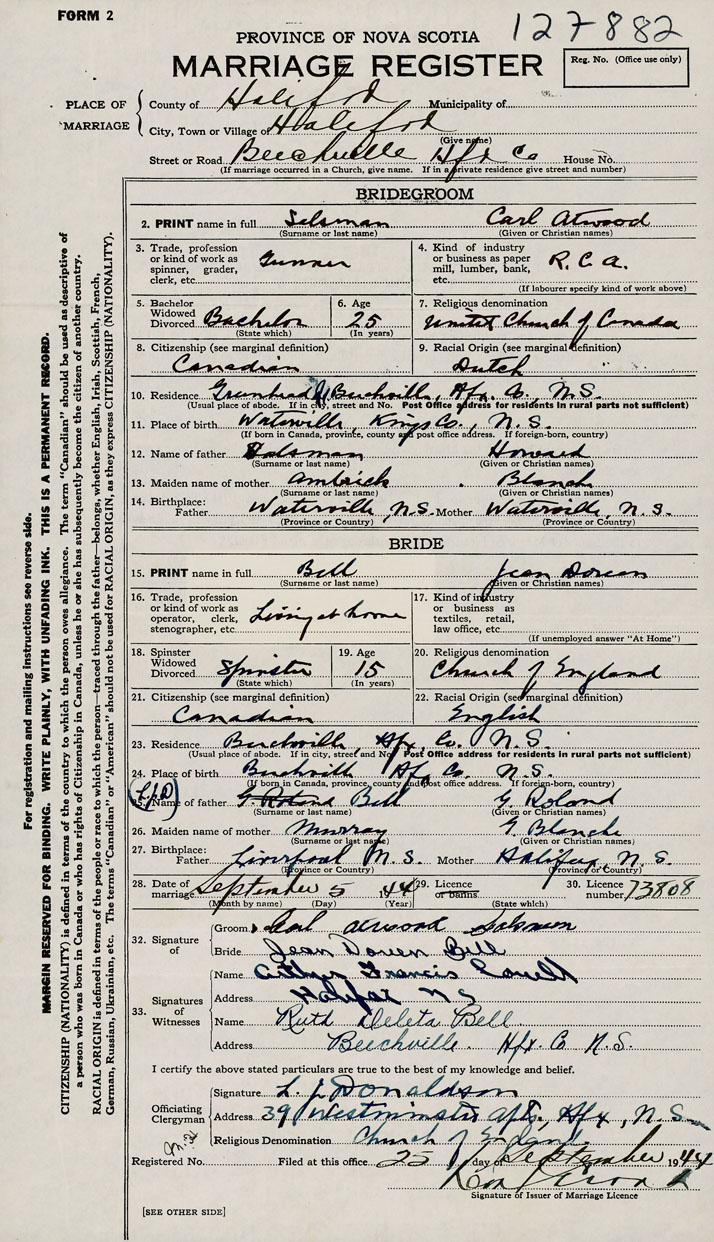 FORM 2
127882
PROVINCE OF NOVA SCOTIA
MARRIAGE REGISTER
Reg. No. (Office use only)
PLACE OF MARRIAGE
County of Halifax Municipality of
City, Town or Village of Halifax
(Give name)
Street or Road Beechville Hfx Co House No.
(If marriage occurred in a Church, give name. If in a private residence give street and number)
BRIDEGROOM
2. PRINT name in full Salsman Carl Atwood
(Surname or last name) (Given or Christian names)
3. Trade, profession or kind of work as spinner, grader, clerk, etc. Gunner
4. Kind of industry or business as paper mill, lumber, bank, etc. R.C.A.
(If labourer specify kind of work above)
5. Bachelor Widowed Divorced Bachelor (State which)
6. Age 25 (In years)
7. Religious denomination United Church of Canada
8. Citizenship (see marginal definition) Canadian
9. Racial Origin (see marginal definition) Dutch
10. Residence Beechville, Hfx. Co. N.S.
(Usual place of abode. If in city, street and No. Post Office address for residents in rural parts not sufficient)
11. Place of birth Waterville, Kings Co., N.S.
(If born in Canada, province, county and post office address. If foreign-born, country)
12. Name of father Salsman Howard
(Surname or last name) (Given or Christian names)
13. Maiden name of mother Blanch
(Surname or last name) (Given or Christian names)
14. Birthplace: Father Waterville, N.S. Mother Waterville, N.S.
(Province or Country) (Province or Country)
BRIDE
15. PRINT name in full Bell Jean Doreen
(Surname or last name) (Given or Christian names)
16. Trade, profession or kind of work as operator, clerk, stenographer, etc. Living at home
17. Kind of industry or business as textiles, retail, law office, etc.
(If unemployed answer "At Home")
18. Spinster Widowed Divorced Spinster (State which)
19. Age 15 (In years)
20. Religious denomination Church of England
21. Citizenship (see marginal definition) Canadian
22. Racial Origin (see marginal definition) English
23. Residence Beechville, Hfx. Co. N.S.
(Usual place of abode. If in city, street and No. Post Office address for residents in rural parts not sufficient)
24. Place of birth Beechville Hfx Co. N.S.
(If born in Canada, province, county and post office address. If foreign-born, country)
L.J.D. Name of father G. Roland Bell G. Roland
(Surname or last name) (Given or Christian names)
26. Maiden name of mother Murray G. Blanche
(Surname or last name) (Given or Christian names)
27. Birthplace: Father Liverpool N.S. Mother Halifax, N.S.
(Province or Country) (Province or Country)
28. Date of marriage September 5 1944 29. Licence or banns 30. Licence number 73808
(Month by name) (Day) (Year) (State which)
32. Signature of
Groom Carl Atwood Salsman
Bride Jean Doreen Bell
33. Signatures of Witnesses
Name Arthur Francis
Address Halifax N S
Name Ruth Deleta Bell
Address Beechville. Hfx. Co N.S.
I certify the above stated particulars are true to the best of my knowledge and belief.
Officiating Clergyman
Signature L. J. Donaldson
Address 39 Westminster Apts. Hfx, N.S.
Religious Denomination Church of England
Registered No. Filed at this office 25 day of September 1944
Signature of Issuer of Marriage Licence
[SEE OTHER SIDE]
For registration and mailing instructions see reverse side.
MARGIN RESERVED FOR BINDING. WRITE PLAINLY, WITH UNFADING INK. THIS IS A PERMANENT RECORD.
CITIZENSHIP (NATIONALITY) is defined in terms of the country to which the person owes allegiance. The term "Canadian" should be used as descriptive of
a person who was born in Canada or who has rights of Citizenship in Canada, unless he or she has subsequently become the citizen of another country.
RACIAL ORIGIN is defined in terms of the people or race to which the person—traced through the father—belongs, whether English, Irish, Scottish, French,
German, Russian, Ukrainian, etc. The terms "Canadian" or "American" should not be used for RACIAL ORIGIN, as they express CITIZENSHIP (NATIONALITY).